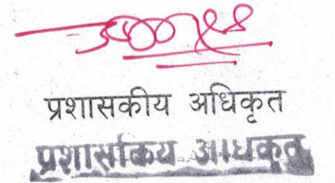 प्रशासकीय अधिकृत
प्रशासकिय अधिकृत